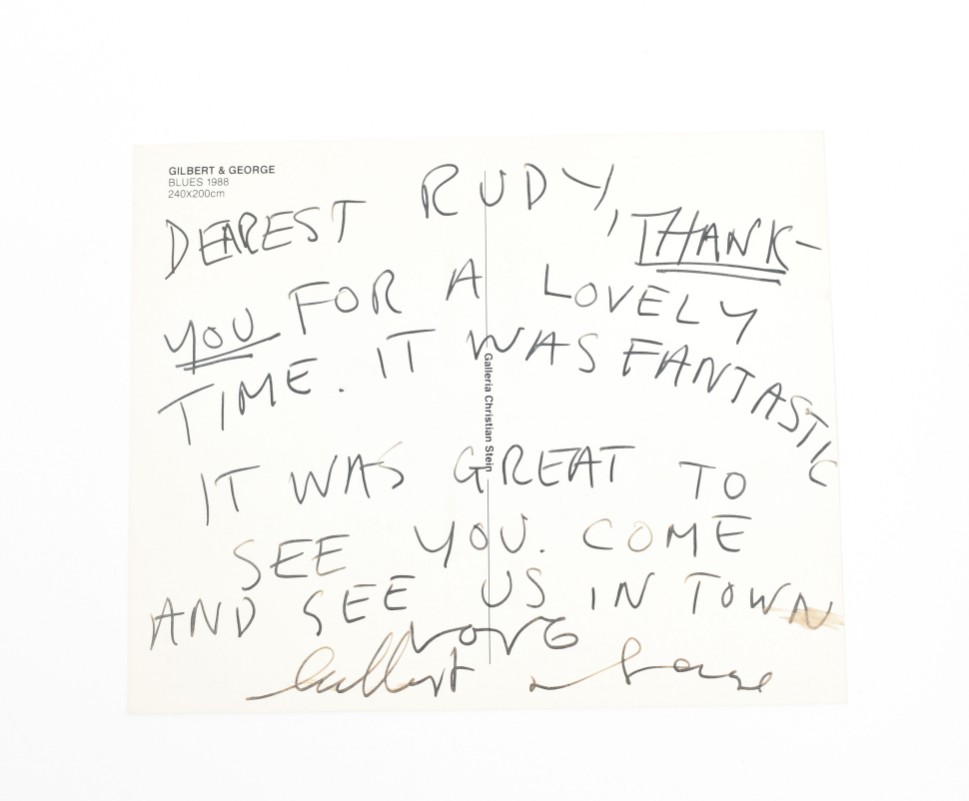 GILBERT & GEORGE
BLUES 1988
240X200cm
DEAREST RUDY, THANK-
YOU FOR A LOVELY
TIME. IT WAS FANTASTIC
IT WAS GREAT TO
SEE YOU. COME
AND SEE US IN TOWN
LOVE
Gilbert & George
Galleria Christian Stein